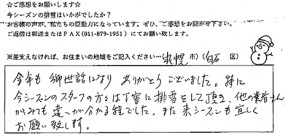 ☆ご感想をお願いします☆
今シーズンの排雪はいかがでしたか？
お客様の声が、私たちの原動力になっています。ぜひ、ご感想をお聞かせ下さい。
ご返信は郵送またはFAX(011-879-1951)にてお願い致します。
※差支えなければ、お住まいの地域をご記入ください…(札幌市)(白石区)
今年も御世話になり ありがとうございました。特に
今シーズンのスタッフの方々は丁寧に排雪をして頂き、他の業者さん
からみても違いが分かる程でした。また来シーズンも宜しく
お願い致します。